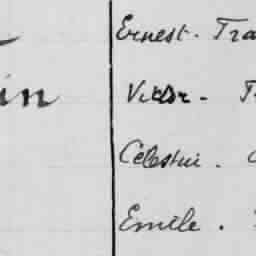 in
Ernest. Tra
Victor.
Célestin.
Emile.